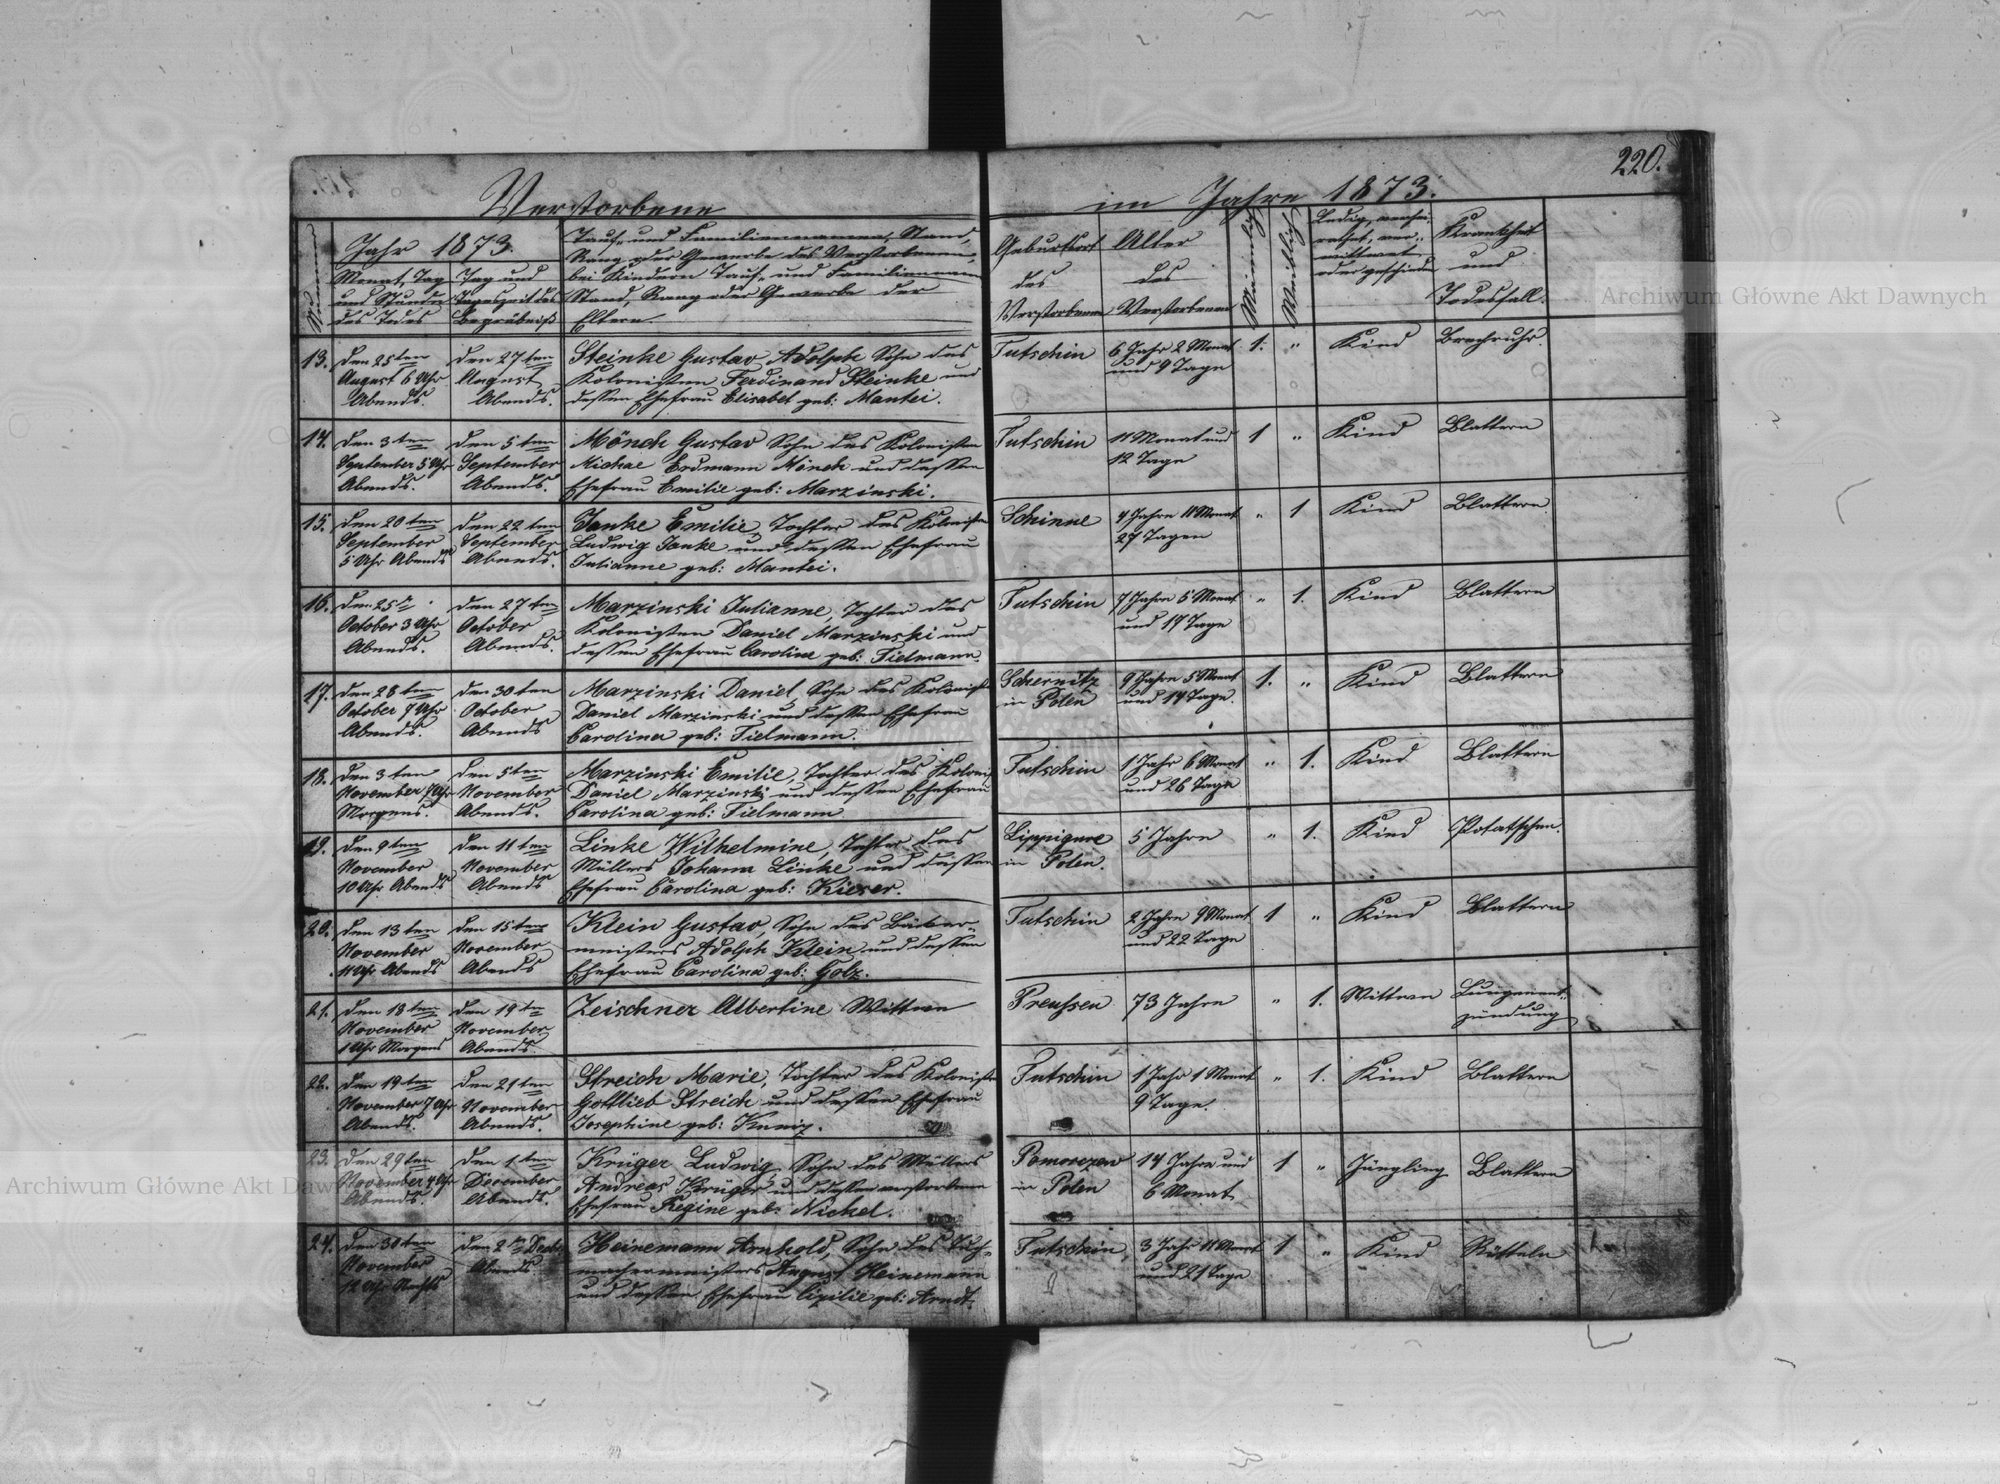 220.
Verstorbene
im Jahre 1873.
Jahr 1873.
Monat, Tag
und Stunde
des Todes
Tag und
Tageszeit des
Begräbniß
Tauf- und Familiennamen, Stand,
Rang oder Gewerbe des Verstorbenen,
bei Kindern Tauf- und Familiennamen
Stand, Rang oder Gewerbe der
Eltern.
Geburtsort
des
Verstorbenen
Alter
des
Verstorbenen
Männlich
Weiblich
Ledig, verhei-
rathet, ver-
wittwet
oder geschieden
Krankheit
und
Todesfall.
13.
den 25ten
August 6 Uhr
Abends.
den 27ten
August
Abends.
Steinke Gustav Adolph Sohn des
Kolonisten Ferdinand Steinke und
dessen Ehefrau Elisabet geb: Mantei.
Tutschin
6 Jahr 2 Monat
und 9 Tage
1. "
Kind
Brechruhr.
14.
den 3ten
September 5 Uhr
Abends.
den 5ten
September
Abends.
Mönch Gustav Sohn des Kolonisten
Michae Erdmann Mönch und dessen
Ehefrau Emilie geb: Marzinski.
Tutschin
11 Monat und
12 Tage
1 "
Kind
Blattern
15.
den 20ten
September
5 Uhr Abends
den 22ten
September
Abends.
Janke Emilie, Tochter des Koloniste
Ludwig Janke und dessen Ehefrau
Julianne geb: Mantei.
Schinne
4 Jahre 11 Monat
27 Tagen
" 1
Kind
Blattern
16.
den 25
October 3 Uhr
Abends.
den 27ten
October
Abends.
Marzinski Julianne, Tochter des
Kolonisten Daniel Marzinski und
dessen Ehefrau Caroline geb: Tielmann.
Tutschin
7 Jahre 5 Monat
und 17 Tage
" 1.
Kind
Blattern
17.
den 28ten
October 7 Uhr
Abends.
den 30ten
October
Abends
Marzinski Daniel, Sohn des Kolonist
Daniel Marzinski und dessen Ehefrau
Carolina geb: Tielmann.
Schernitz
in Polen
9 Jahre 5 Monat
und 14 Tage.
1. "
Kind
Blattern
18.
den 3ten
November 7 Uhr
Morgens.
den 5ten
November
Abends.
Marzinski Emilie, Tochter des Kolonist
Daniel Marzinski und dessen Ehefrau
Carolina geb: Tielmann
Tutschin
1 Jahr 6 Monat
und 26 Tage
" 1.
Kind
Blattern
19.
den 9ten
November
10 Uhr Abends
den 11ten
November
Abends
Linke Wilhelmine, Tochter des
Müllers Johann Linke und dessen
Ehefrau Carolina geb: Kieser.
in Polen.
5 Jahre
" 1.
Kind
20.
den 13ten
November
11 Uhr Abends
den 15ten
November
Abends
Klein Gustav, Sohn des Bäcker-
meisters Adolph Klein und dessen
Ehefrau Carolina geb: Golz.
Tutschin
2 Jahre 9 Monat
und 22 Tage
1 "
Kind
Blattern
21.
den 18ten
November
1 Uhr Morgens
den 19ten
November
Abends.
Zeischner Albertine Wittwe
Preußen
73 Jahre
" 1.
Wittwe
Lungenent-
zündung
22.
den 19ten
November 7 Uhr
Abends.
den 21ten
November
Abends.
Streich Marie, Tochter des Koloniste
Gottlieb Streich und dessen Ehefrau
Josephine geb:
Tutschin
1 Jahr 1 Monat
9 Tage.
" 1.
Kind
Blattern
23.
den 29ten
November 4 Uhr
Abends.
den 1ten
December
Abends.
Krüger Ludwig, Sohn des Müllers
Andreas Krüger und dessen verstorbene
Ehefrau Regine geb: Nickel.
Pomorezew
in Polen
14 Jahre und
6 Monat
1 "
Jüngling
Blattern
24.
den 30ten
November
12 Uhr Nachts
den 2 Decb
Abends.
Heinemann Arnhold, Sohn des Tuch-
machermeisters August Heinemann
und dessen Ehefrau Cizilie geb: Arndt.
Tutschin
3 Jahr 11 Monat
und 21 Tage
1 "
Kind
Rötteln
Archiwum Główne Akt Dawnych
Archiwum Główne Akt Dawnych